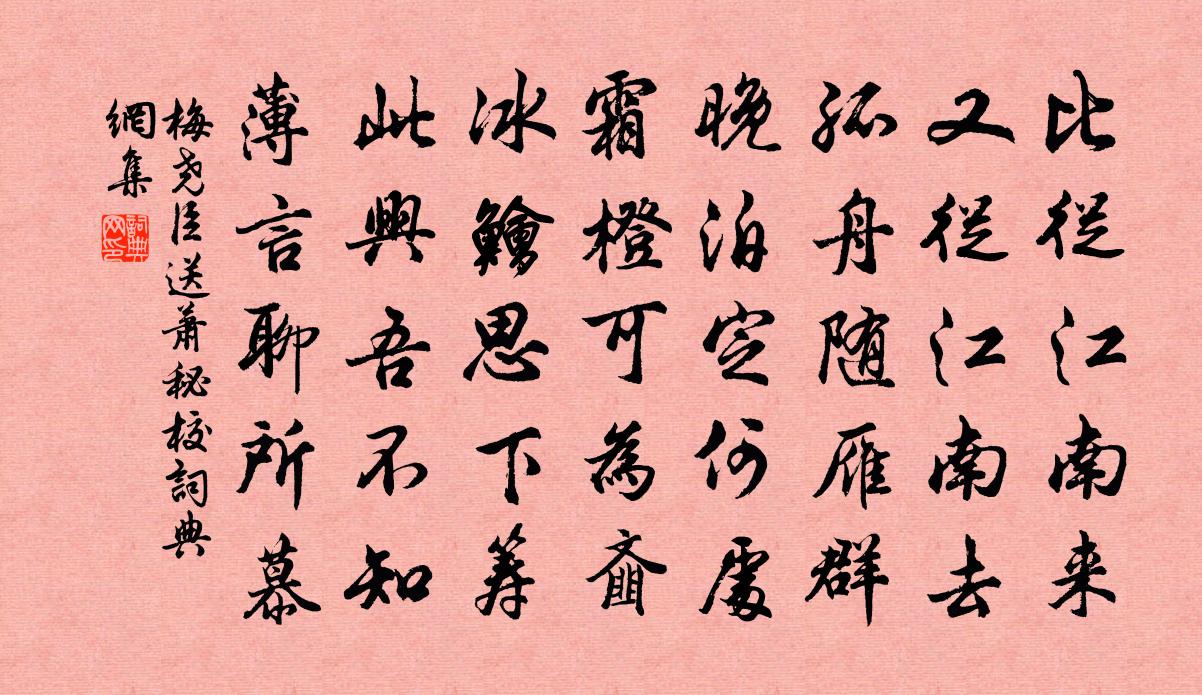 比從江南来
又從江南去
孤舟随雁群
晚泊定何處
霜橙可為齑
冰鱠思下筹
此興吾不知
薄言聊所慕
梅尧臣送萧秘校詞典
網集
詞典
网印